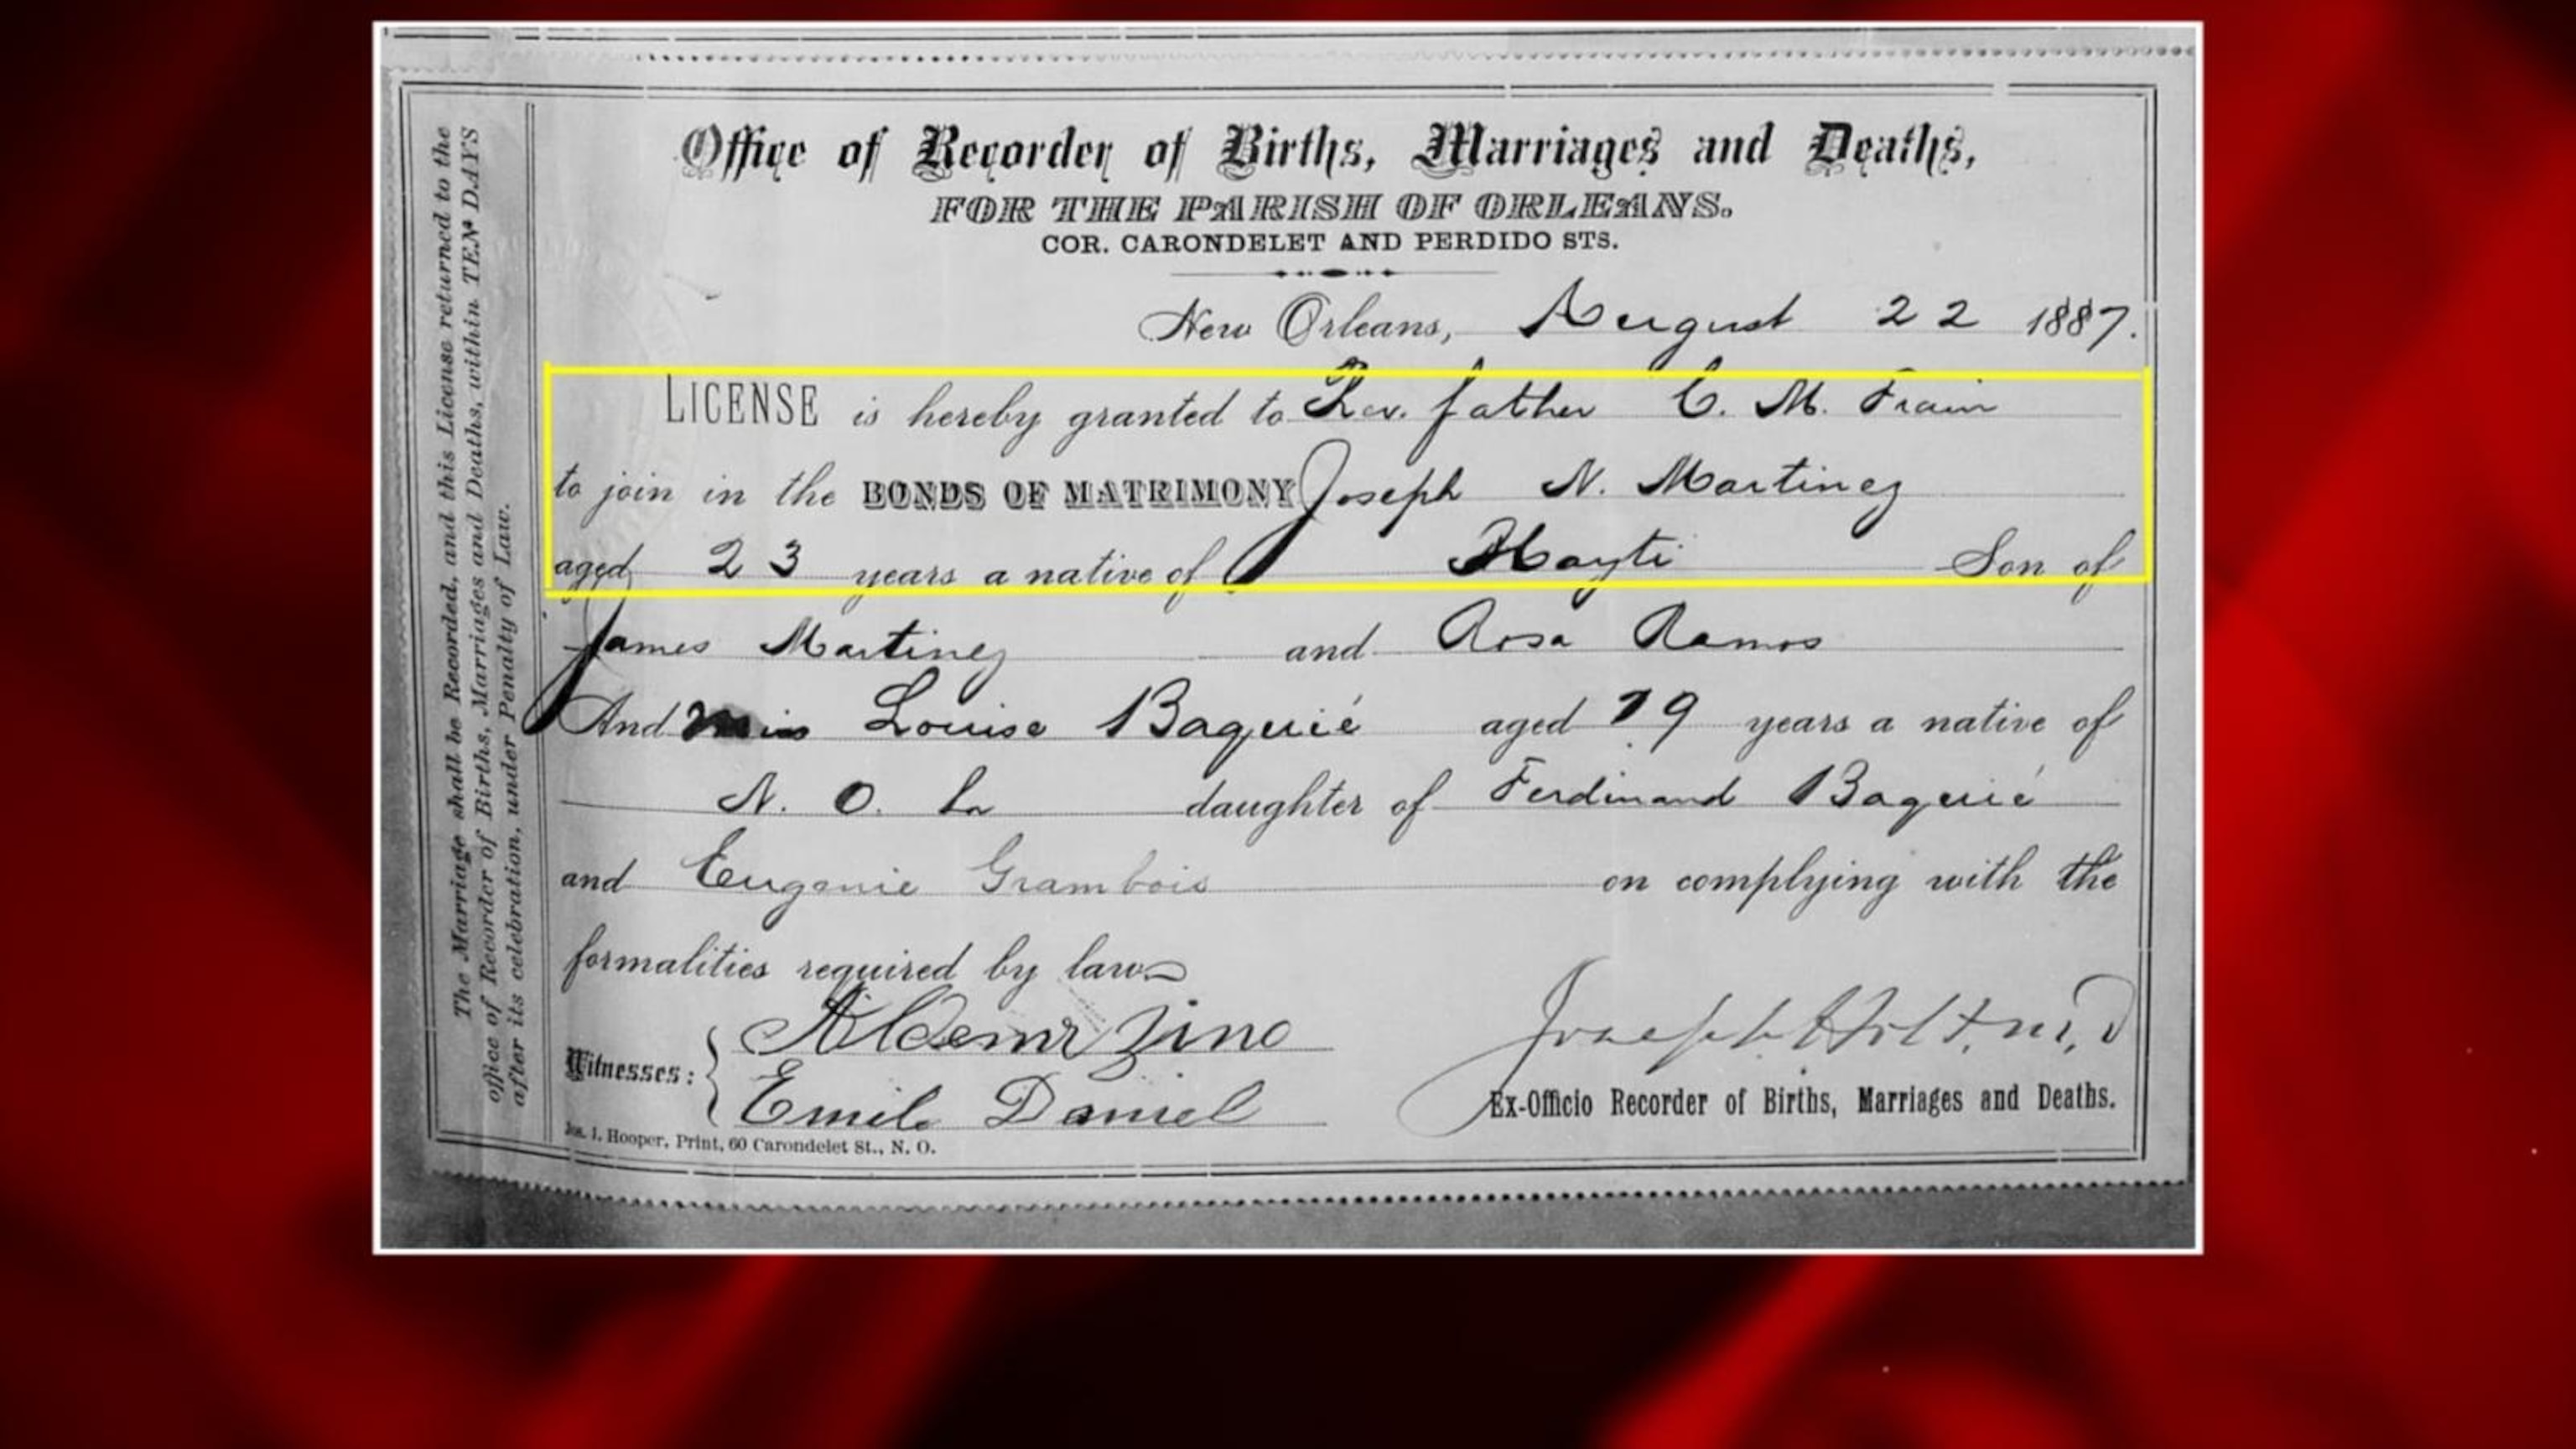 Office of Recorder of Births, Marriages and Deaths,
FOR THE PARISH OF ORLEANS.
COR. CARONDELET AND PERDIDO STS.
New Orleans, August 22 1887.
LICENSE is hereby granted to Rev. father C. M. Frain
to join in the BONDS OF MATRIMONY Joseph N. Martinez
aged 23 years a native of Hayti Son of
James Martinez and Rosa Ramos
And Miss Louise Baquié aged 19 years a native of
N. O. La daughter of Ferdinand Baquié
and Eugenie Grambois on complying with the
formalities required by law
Witnesses: Emile Daniel
Joseph Holt, M, D
Ex-Officio Recorder of Births, Marriages and Deaths.
Jos. I. Hooper, Print, 60 Carondelet St., N. O.
The Marriage shall be Recorded, and this License returned to the
office of Recorder of Births, Marriages and Deaths, within TEN DAYS
after its celebration, under Penalty of Law.